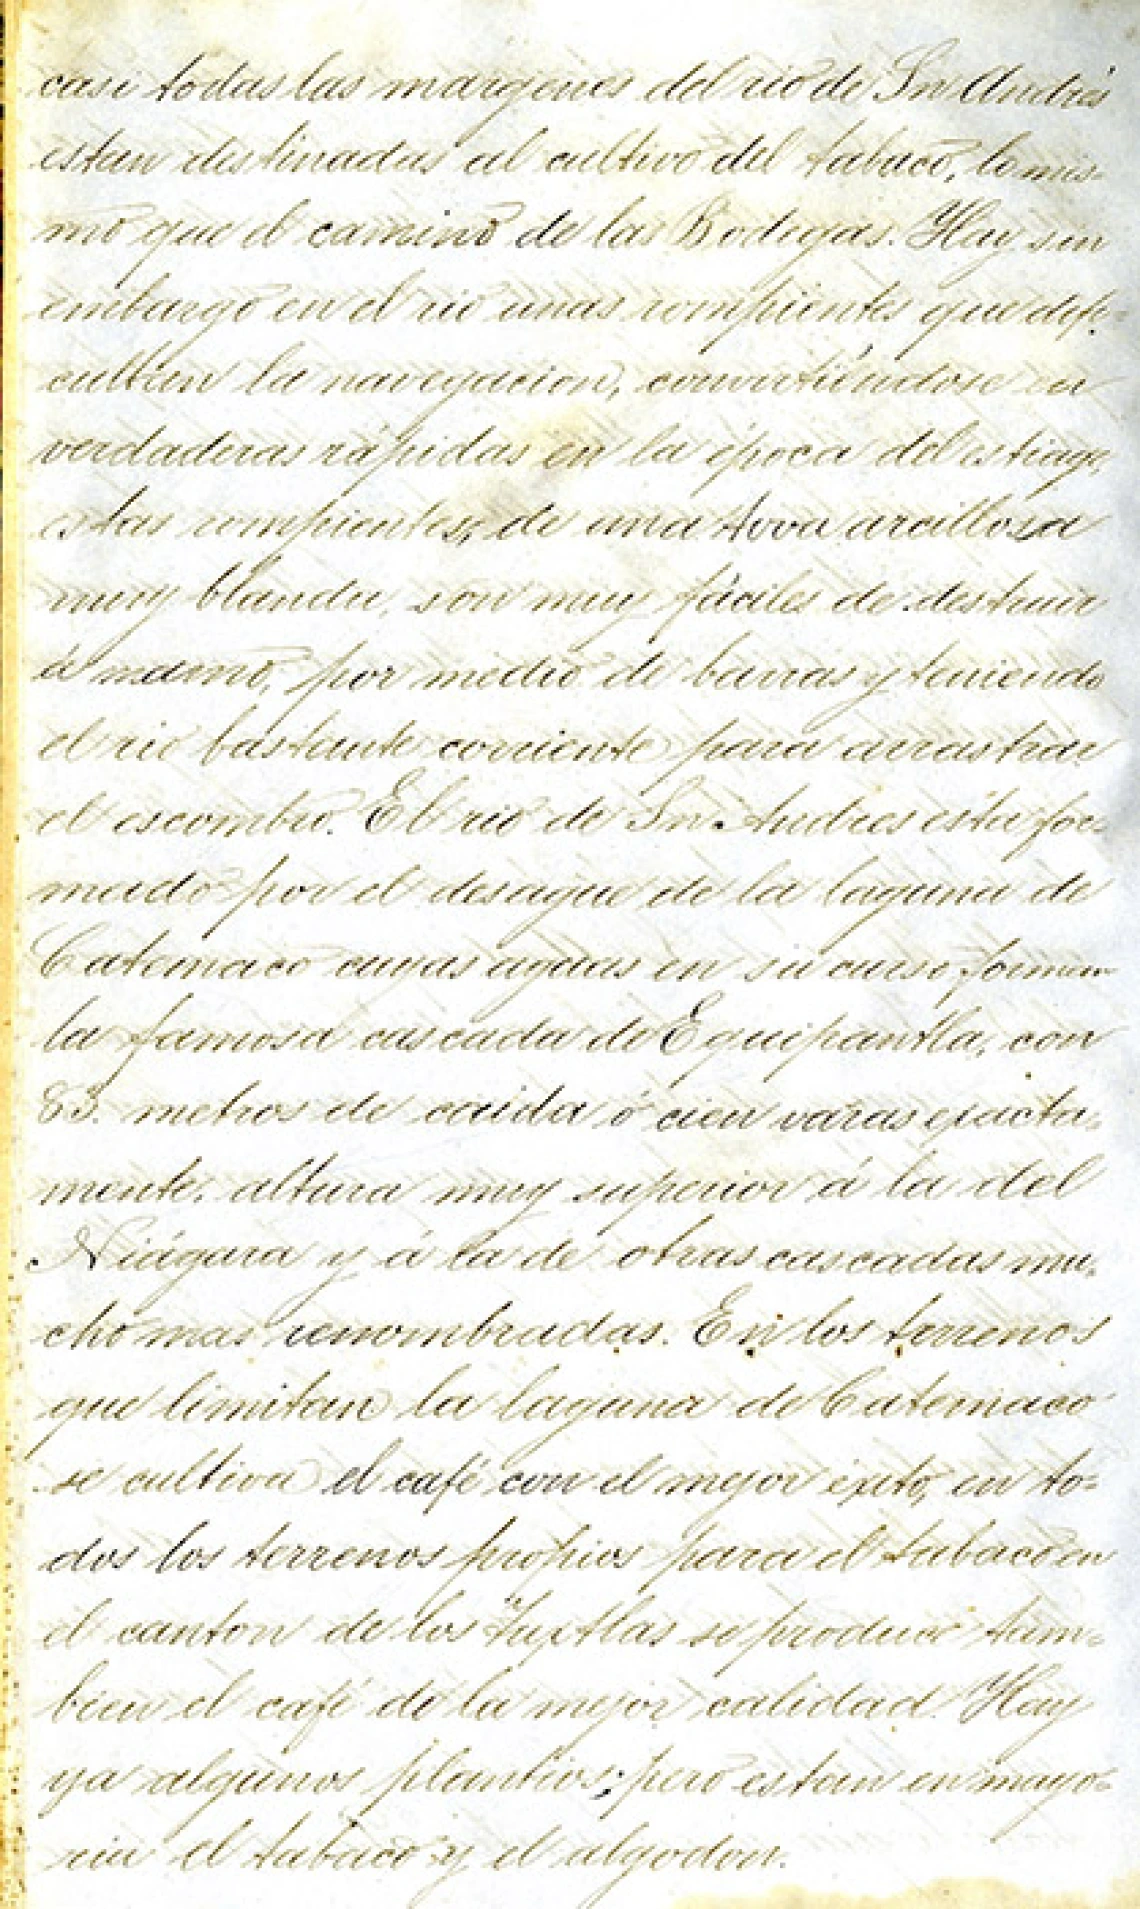 casi todas las margenes del rio de Sn Andrés
estan destinadas al cultivo del tabaco, lo mis-
mo que el camino de las Bodegas. Hay sin
embargo en el rio unas rompientes que difi-
cultan la navegacion, convirtiéndose en
verdaderas rápidas en la época del estiage,
estas rompientes, de una tova arcillosa
muy blanda, son muy fáciles de destruir
á mano, por medio de barras y teniendo
el rio bastante corriente para arrastrar
el escombro. El rio de Sn Andres está for-
mado por el desagüe de la laguna de
Catemaco cuyas aguas en su curso forman
la famosa cascada de Eguipantla, con
83. metros de caida ó cien varas exacta-
mente, altura muy superior á la del
Niágara y á la de otras cascadas mu-
cho mas renombradas. En los terrenos
que limitan la laguna de Catemaco
se cultiva el café con el mejor éxito, en to-
dos los terrenos propios para el tabaco en
el canton de los Tuxtlas se produce tam-
bien el café de la mejor calidad. Hay
ya algunos plantios; pero estan en mayo-
ria el tabaco y el algodon.